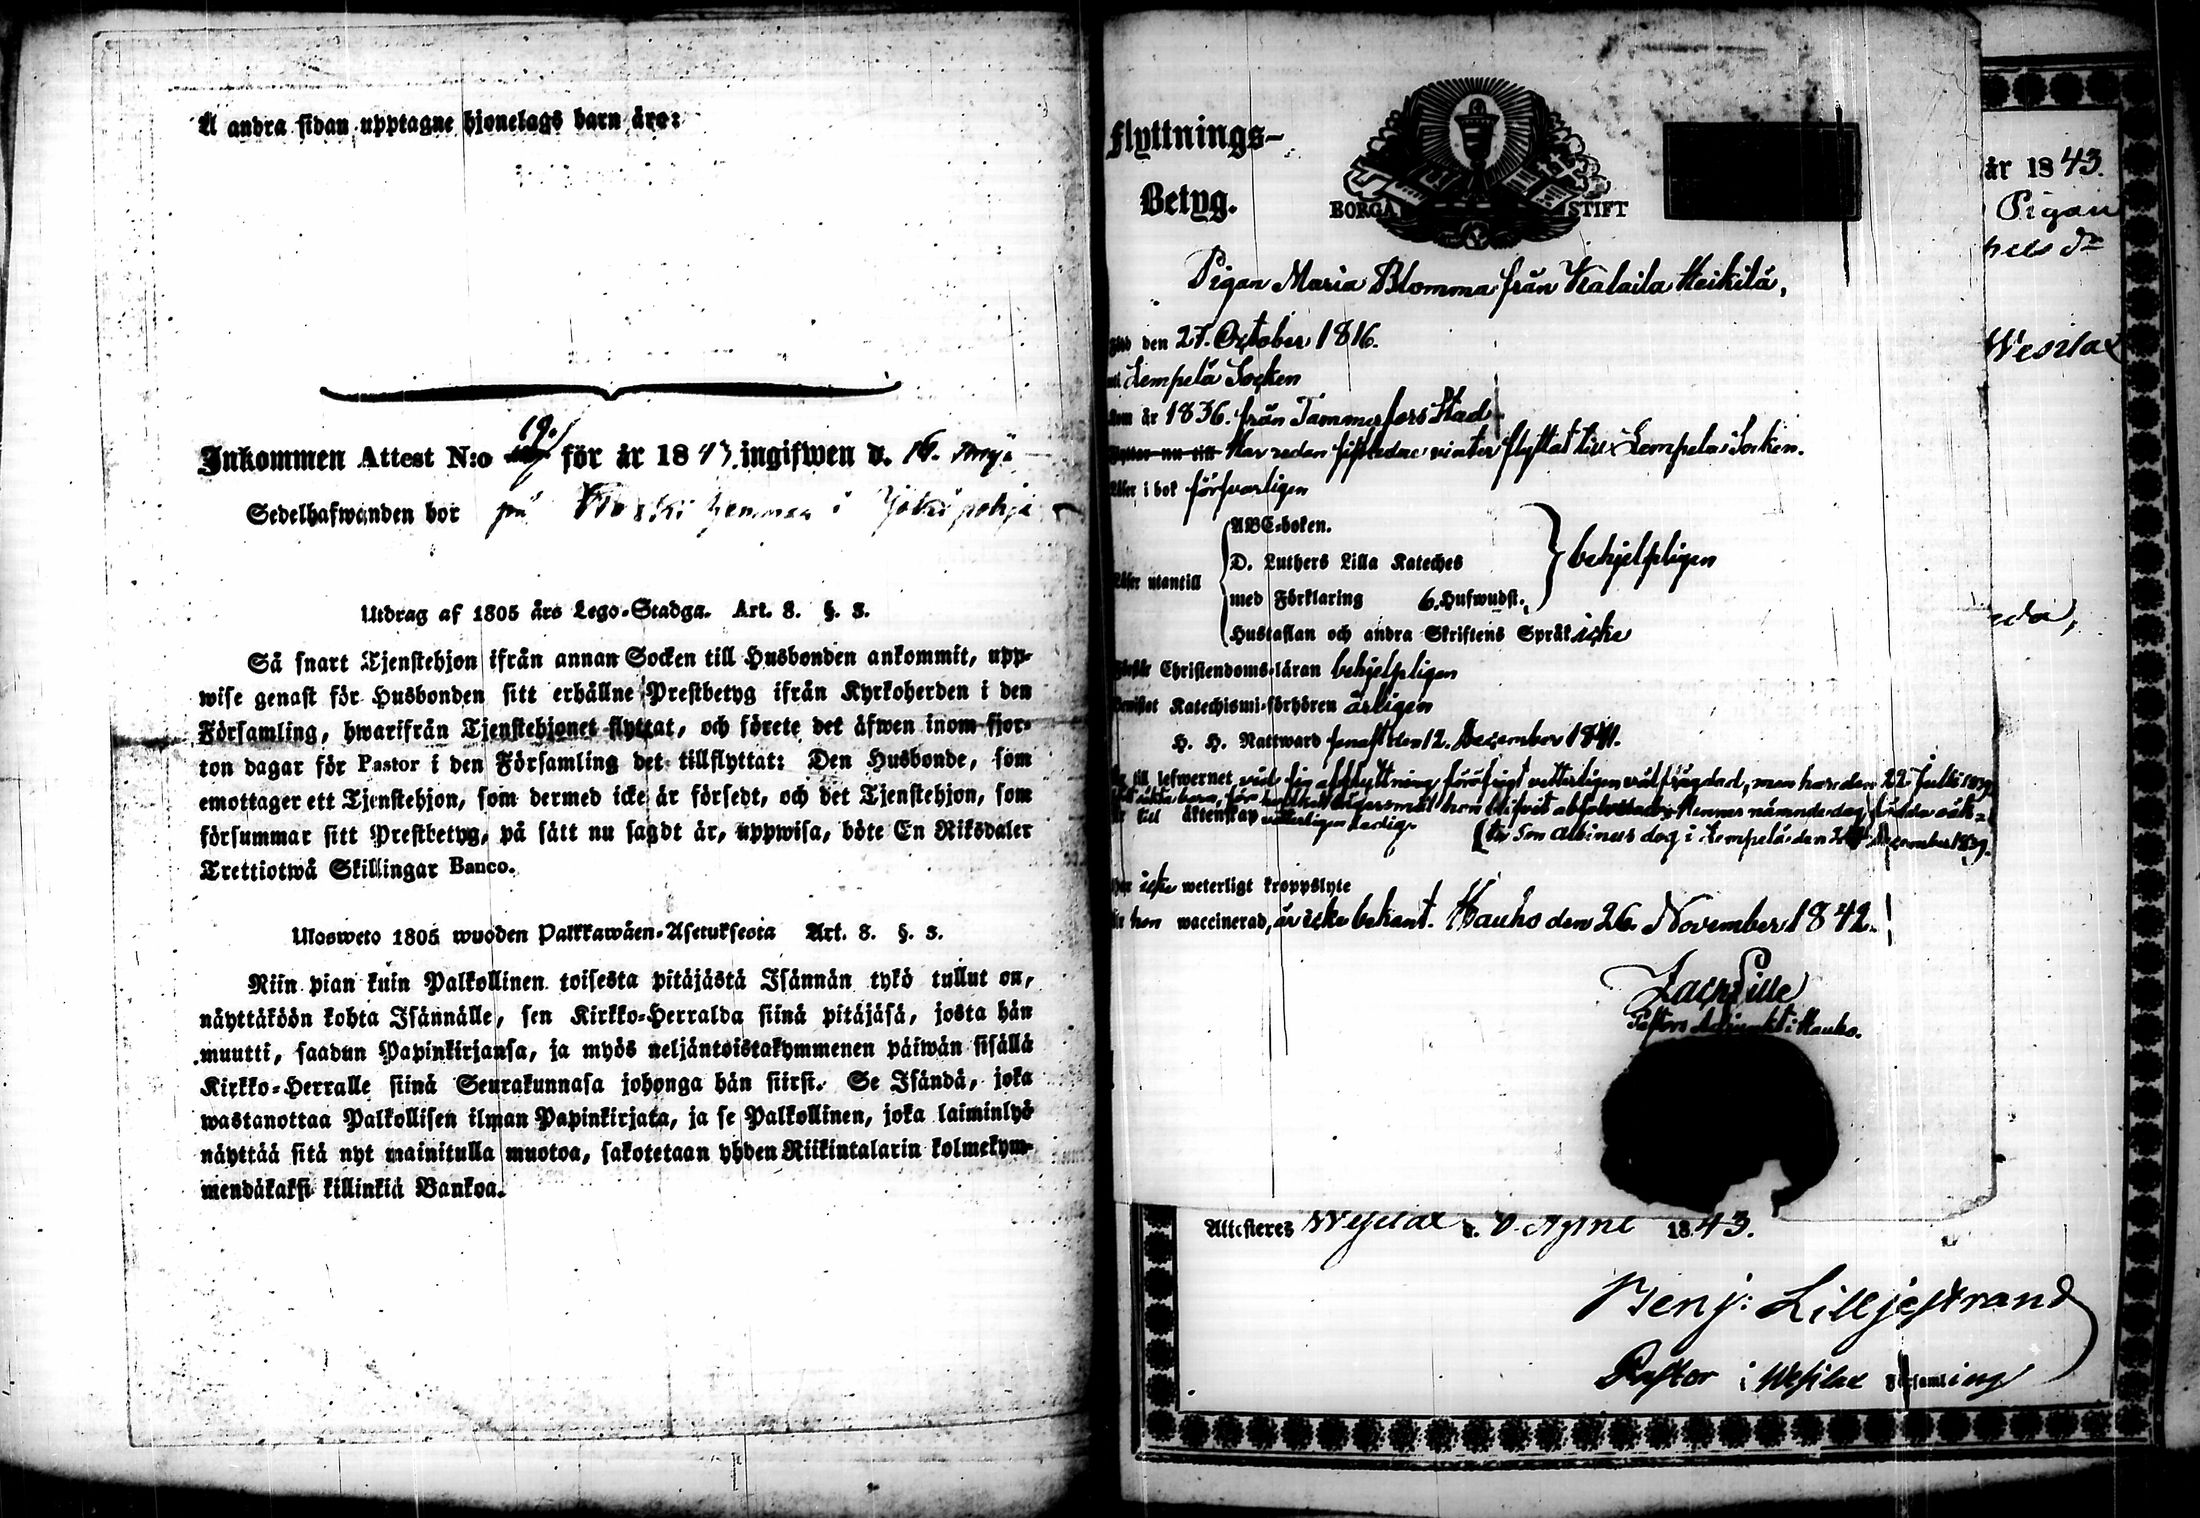 A andra sidan upptagne hjonelags barn äro:
19.
Inkommen Attest N:o för år 1843. ingifwen d. 16. maji
Sedelhafwanden bor på hemman i
Utdrag af 1805 års Lego-Stadga. Art. 8. §. 3.
Så snart Tjenstehjon ifrån annan Socken till Husbonden ankommit, upp-
wise genast för Husbonden sitt erhållne Prestbetyg ifrån Kyrkoherden i den
Församling, hwarifrån Tjenstehjonet flyttat, och förete det äfwen inom fjor-
ton dagar för Pastor i den Församling det tillflyttat: Den Husbonde, som
emottager ett Tjenstehjon, som dermed icke är försedt, och det Tjenstehjon, som
försummar sitt Prestbetyg, på sätt nu sagdt är, uppwisa, böte En Riksdaler
Trettiotwå Skillingar Banco.
Ulosweto 1805 wuoden Palkkawäen-Asetuksesta Art. 8. §. 3.
Niin pian kuin Palkollinen toisesta pitäjästä Isännän tykö tullut on,
näyttäköön kohta Isännälle, sen Kirkko-Herralda siinä pitäjäsä, josta hän
muutti, saadun Papinkirjansa, ja myös neljäntoistakymmenen päiwän sisällä
Kirkko-Herralle siinä Seurakunnasa johonga hän siirsi. Se Isändä, joka
wastanottaa Palkollisen ilman Papinkirjata, ja se Palkollinen, joka laiminlyö
näyttää sitä nyt mainitulla muotoa, sakotetaan yhden Riikintalarin kolmekym-
mendäkaksi killinkiä Bankoa.
Flyttnings-
Betyg.
BORGÅ STIFT
Pigan Maria Blomma från Kalaila Heikilä,
född den 27. October 1816.
uti Lempelä Socken
kom år 1836. från Tammerfors Stad
Flyttar nu till Har redan sistledne vinter flyttat till Lempelä Socken.
Läser i bok försvarligen
Läser utantill
ABC-boken.
D. Luthers Lilla Kateches
med Förklaring 6. Hufwudst.
behjelpligen
Hustaflan och andra Skriftens Språk icke
Förstår Christendoms-läran behjelpligen
Bewistat Katechismi-förhören årligen
H. H. Nattward senast den 12. December 1841.
Är till lefwernet vid sin afflyttning, för öfrigt vetterligen välfrägdad, men har den 22 Julii 1839
födt oäkta barn, för hvilket lägersmål hon blifvit absolverad. Hennes nämnde dag födda oäk-
är till äktenskap vetterligen ledig.
ta Son Albinus dog i Lempelä den December 1839.
Har icke weterligt kroppslyte
Är hon waccinerad, är icke bekant. Hauho den 26. November 1842.
Zach Lille
Pastors Adjunkt i Hauho.
år 1843.
Pigan
Westlax
Attesteres d. April 1843.
Benj: Lilljestrand
Pastor i Församling